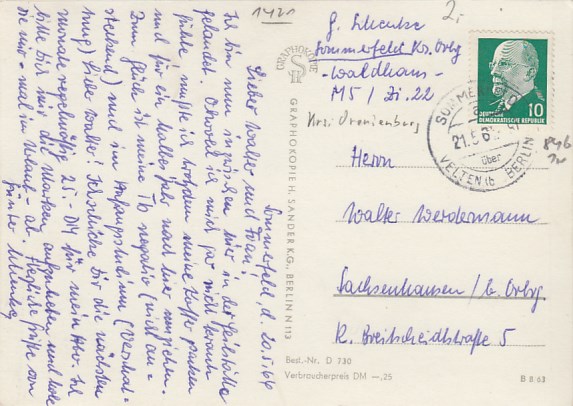 1420
Sommerfeld, d. 20.5.64
Lieber Walter und Frau!
Ich bin nun inzwischen hier in der Heilstätte
gelandet. Obwohl ich mich gar nicht krank
fühle, mußte ich trotzdem meine Koffer packen
und für ein halbes Jahr nach hier umziehen.
Zum Glück ist meine Tb negativ (nicht an-
steckend) und im Anfangsstadium
Lieber Walter! Ich schicke Dir die nächsten
Monate regelmäßig 25,- DM für mein
bitte Dir mir die Marken aufzuheben und
sie mir - mal in Urlaub - ab. Herzliche Grüße von
Günter
GRAPHOKOPIE
GRAPHOKOPIE H. SANDER KG., BERLIN N 113
2,-
G.
Sommerfeld Krs. Orbg
-Waldhaus-
M5 / Zi. 22
Krs. Oranienburg
10
DEUTSCHE DEMOKRATISCHE REPUBLIK
SOMMERFELD
21.5.6
über
VELTEN b BERLIN
Herrn
Walter Werdermann
Sachsenhausen / b. Orbg
R. Breitscheidstraße 5
Best.-Nr. D 730
Verbraucherpreis DM —,25
B 8 63